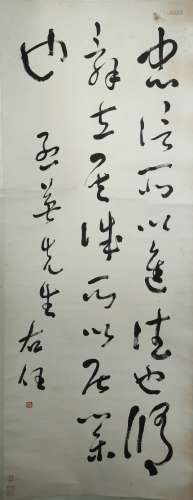 忠信所以進德也修
辭立其誠所以居業
也
英先生 右任